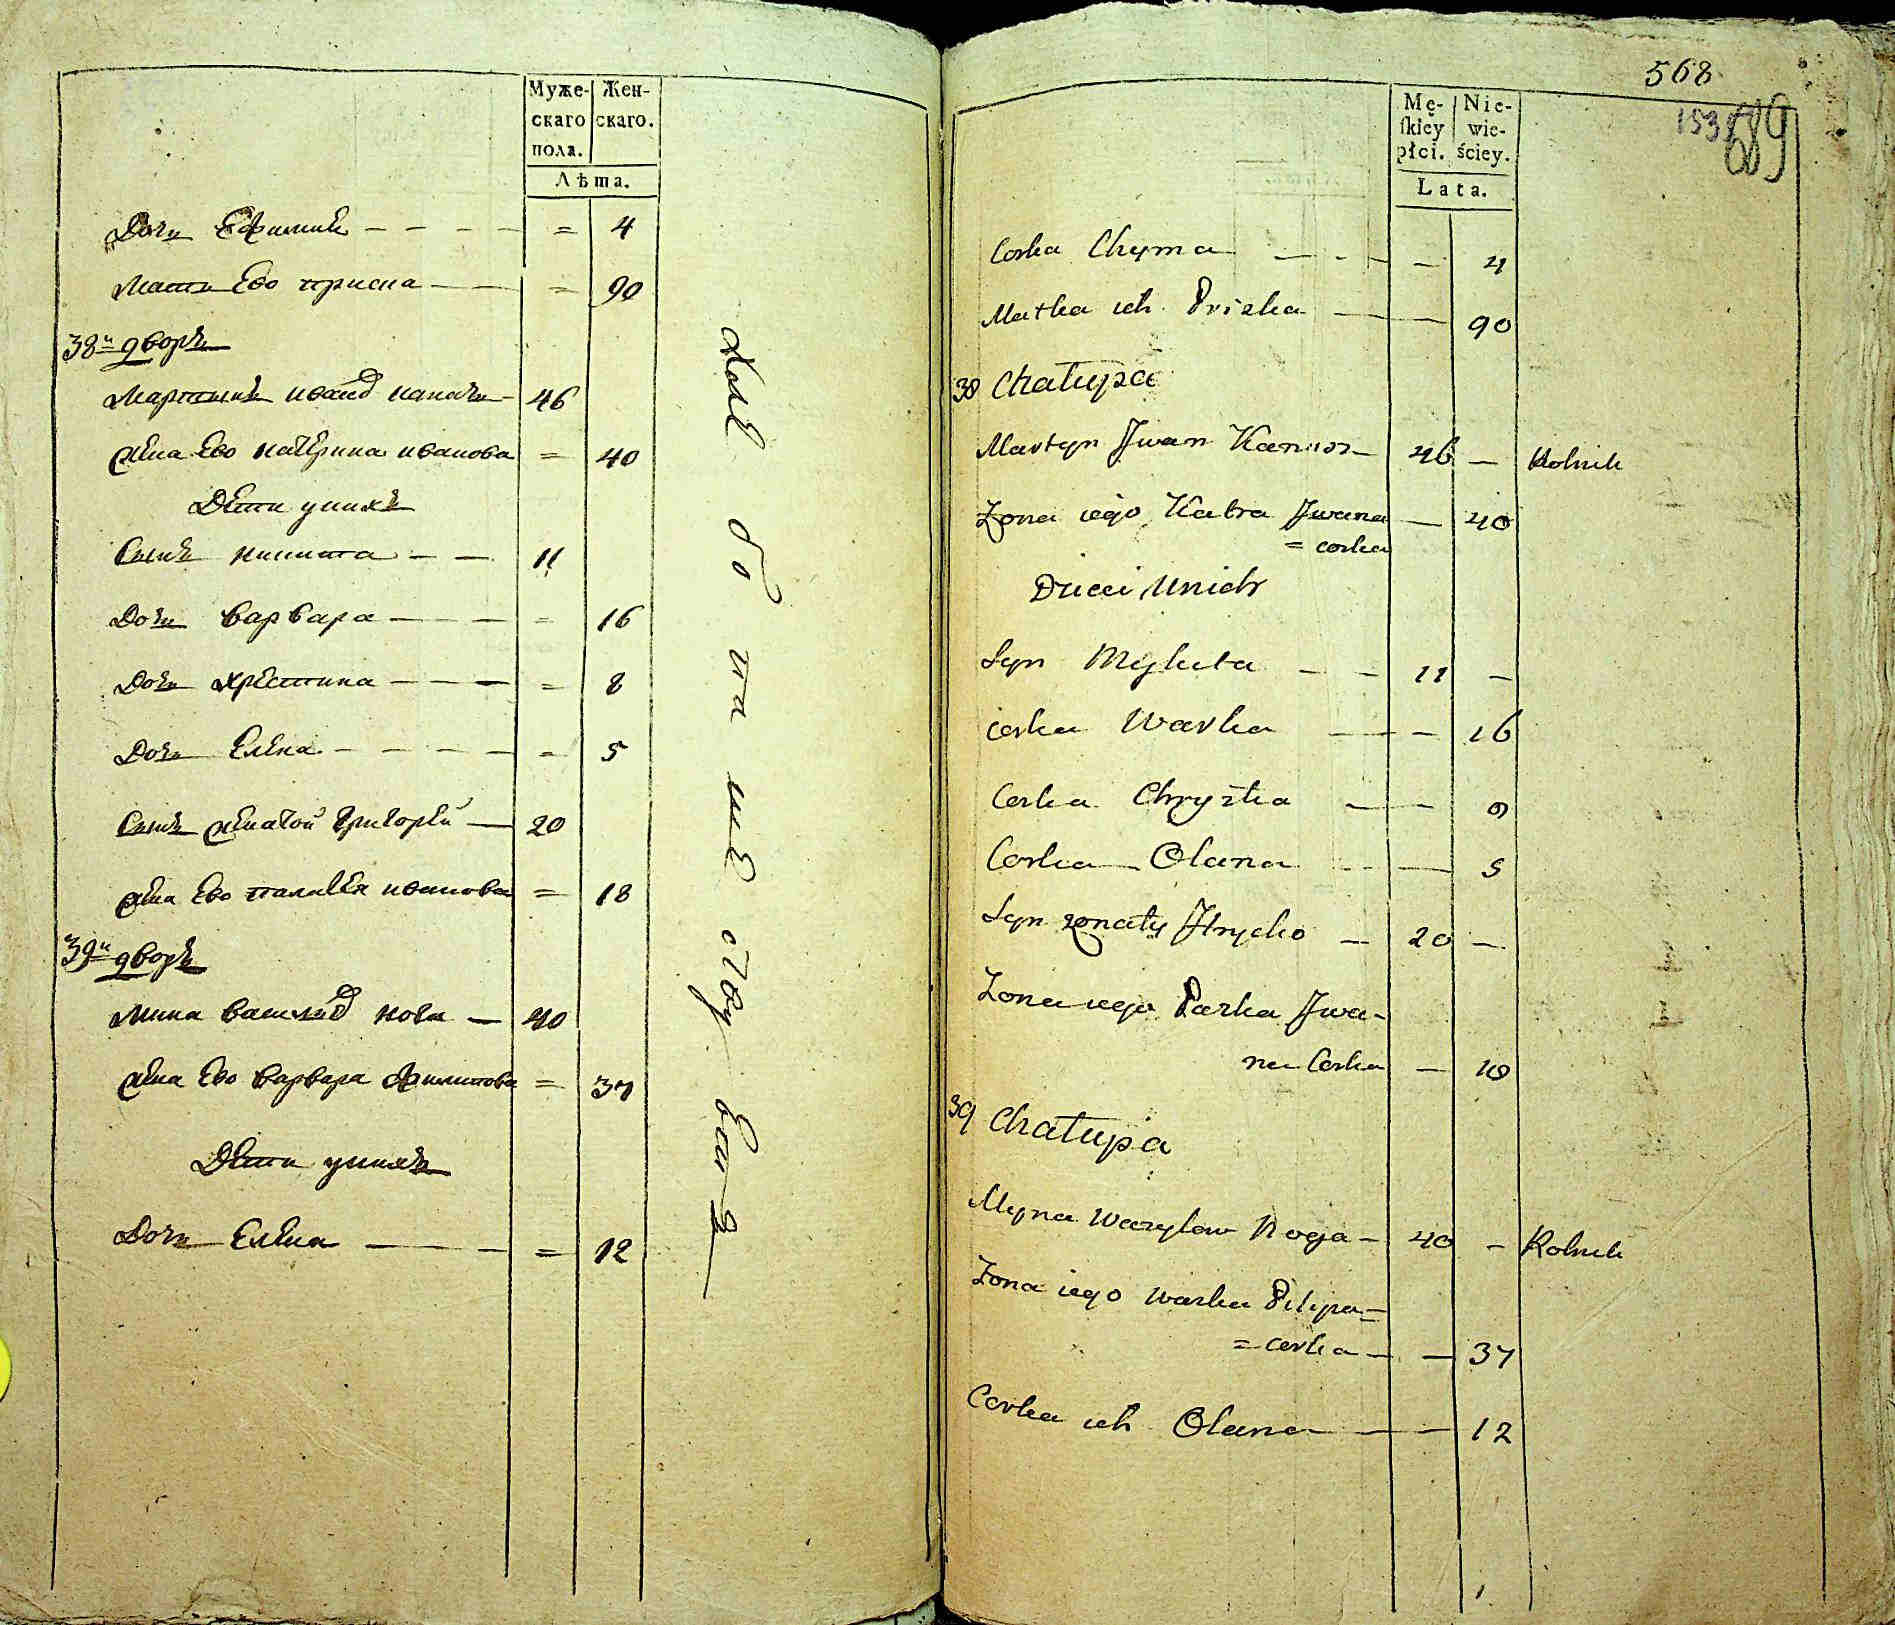 Муже-
скаго
пола.
Жен-
скаго.
Лѣта.
Дочь Ефимия — = 4
Мати Ево приска — = 90
38й дворъ
Мартынъ иванов — 46
жена Ево катерина иванова = 40
Дети унихъ
Сынъ никита — 11
Дочь варвара — = 16
Дочь христина — = 8
Дочь Елена — = 5
Сынъ женатой григорей — 20
жена Ево палагея иванова = 18
39й дворъ
Мина василиев нога — 40
жена Ево варвара филипова = 37
Дети унихъ
Дочь Елена — = 12
568
153
689
Mę-
skiey
płci.
Nie-
wie-
ściey.
Lata.
Corka Chyma — — 4
Matka ich Priska — — 90
38 Chałupa
Martyn Jwan — 46 — Rolnik
Zona iego Katra Jwana — 40
= corka
Dzieci Unich
Syn Mykita — 11 —
corka Warka — — 16
Corka Chryzka — —
Corka Olana — 5
Syn zonaty Hrycko — 20 —
Zona iego Parka Jwa-
na Corka — 18
39 Chałupa
Myna Wazylow Noga — 40 — Rolnik
Zona iego Warka Pilipa =
= corka — — 37
Corka ich Olana — — 12